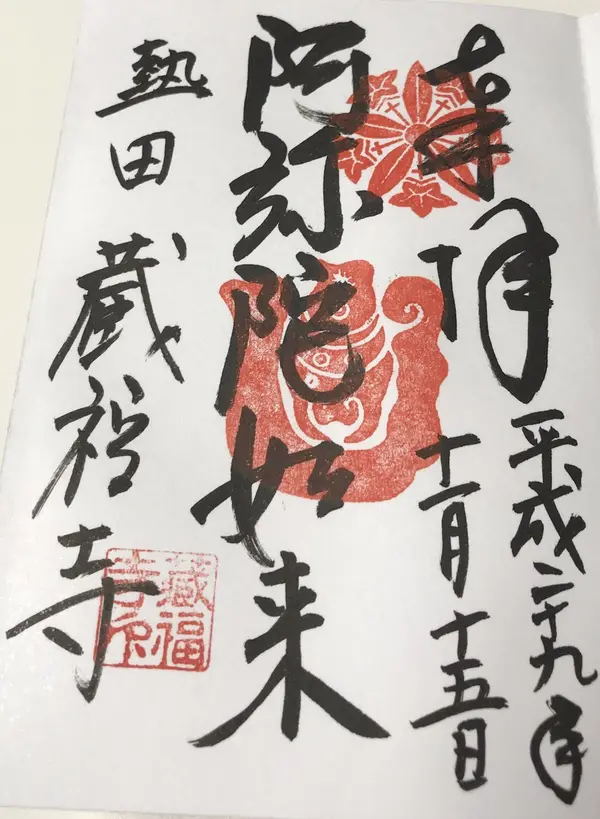 奉拝
平成二十九年
十一月十五日
阿弥陀如来
熱田 蔵福寺
蔵福
寺印